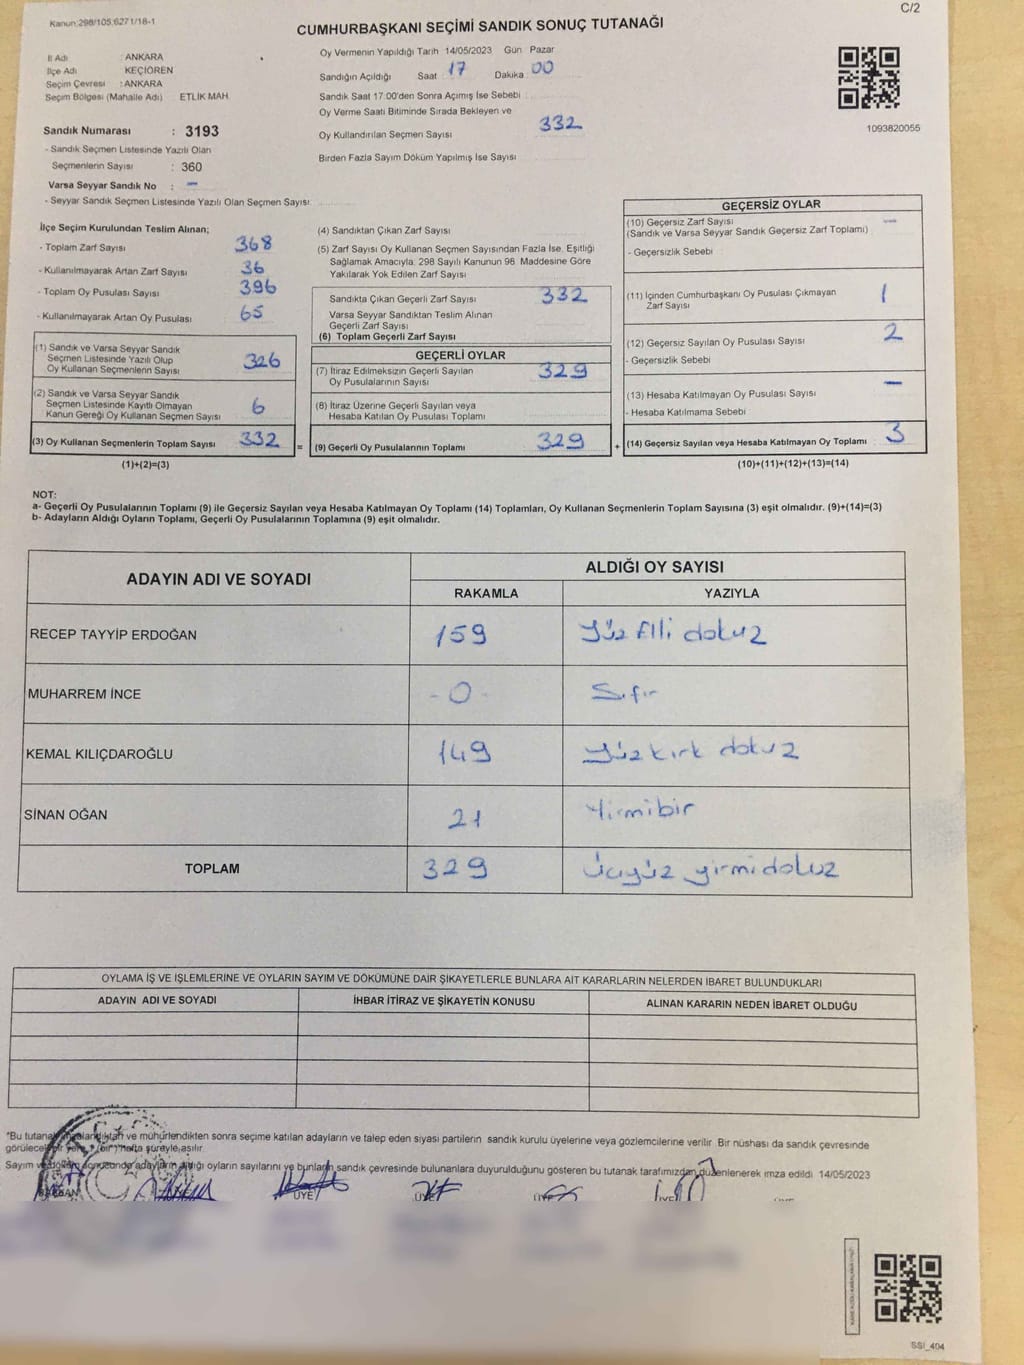 C/2
Kanun:298/105.6271/18-1
CUMHURBAŞKANI SEÇİMİ SANDIK SONUÇ TUTANAĞI
İl Adı : ANKARA
İlçe Adı KEÇİÖREN
Seçim Çevresi : ANKARA
Seçim Bölgesi (Mahalle Adı) ETLİK MAH.
Sandık Numarası : 3193
- Sandık Seçmen Listesinde Yazılı Olan
Seçmenlerin Sayısı : 360
Varsa Seyyar Sandık No : -
- Seyyar Sandık Seçmen Listesinde Yazılı Olan Seçmen Sayısı:
Oy Vermenin Yapıldığı Tarih 14/05/2023 Gün Pazar
Sandığın Açıldığı Saat 17 Dakika 00
Sandık Saat 17:00'den Sonra Açımış İse Sebebi
Oy Verme Saati Bitiminde Sırada Bekleyen ve
Oy Kullandırılan Seçmen Sayısı 332
Birden Fazla Sayım Döküm Yapılmış İse Sayısı
1093820055
İlçe Seçim Kurulundan Teslim Alınan;
- Toplam Zarf Sayısı 368
- Kullanılmayarak Artan Zarf Sayısı 36
- Toplam Oy Pusulası Sayısı 396
- Kullanılmayarak Artan Oy Pusulası 65
(1) Sandık ve Varsa Seyyar Sandık
Seçmen Listesinde Yazılı Olup
Oy Kullanan Seçmenlerin Sayısı 326
(2) Sandık ve Varsa Seyyar Sandık
Seçmen Listesinde Kayıtlı Olmayan
Kanun Gereği Oy Kullanan Seçmen Sayısı 6
(3) Oy Kullanan Seçmenlerin Toplam Sayısı 332 =
(1)+(2)=(3)
(4) Sandıktan Çıkan Zarf Sayısı
(5) Zarf Sayısı Oy Kullanan Seçmen Sayısından Fazla İse, Eşitliği
Sağlamak Amacıyla: 298 Sayılı Kanunun 98. Maddesine Göre
Yakılarak Yok Edilen Zarf Sayısı
Sandıkta Çıkan Geçerli Zarf Sayısı 332
Varsa Seyyar Sandıktan Teslim Alınan
Geçerli Zarf Sayısı
(6) Toplam Geçerli Zarf Sayısı
GEÇERLİ OYLAR
(7) İtiraz Edilmeksizin Geçerli Sayılan
Oy Pusulalarının Sayısı 329
(8) İtiraz Üzerine Geçerli Sayılan veya
Hesaba Katılan Oy Pusulası Toplamı
(9) Geçerli Oy Pusulalarının Toplamı 329 +
GEÇERSİZ OYLAR
(10) Geçersiz Zarf Sayısı -
(Sandık ve Varsa Seyyar Sandık Geçersiz Zarf Toplamı)
- Geçersizlik Sebebi
(11) İçinden Cumhurbaşkanı Oy Pusulası Çıkmayan
Zarf Sayısı 1
(12) Geçersiz Sayılan Oy Pusulası Sayısı 2
- Geçersizlik Sebebi
(13) Hesaba Katılmayan Oy Pusulası Sayısı -
- Hesaba Katılmama Sebebi
(14) Geçersiz Sayılan veya Hesaba Katılmayan Oy Toplamı 3
(10)+(11)+(12)+(13)=(14)
NOT:
a- Geçerli Oy Pusulalarının Toplamı (9) ile Geçersiz Sayılan veya Hesaba Katılmayan Oy Toplamı (14) Toplamları, Oy Kullanan Seçmenlerin Toplam Sayısına (3) eşit olmalıdır. (9)+(14)=(3)
b- Adayların Aldığı Oyların Toplamı, Geçerli Oy Pusulalarının Toplamına (9) eşit olmalıdır.
ADAYIN ADI VE SOYADI ALDIĞI OY SAYISI
RAKAMLA YAZIYLA
RECEP TAYYİP ERDOĞAN 159 Yüz Elli dokuz
MUHARREM İNCE -0- Sıfır
KEMAL KILIÇDAROĞLU 149 Yüz kırk dokuz
SİNAN OĞAN 21 Yirmi bir
TOPLAM 329 Üçyüz yirmi dokuz
OYLAMA İŞ VE İŞLEMLERİNE VE OYLARIN SAYIM VE DÖKÜMÜNE DAİR ŞİKAYETLERLE BUNLARA AİT KARARLARIN NELERDEN İBARET BULUNDUKLARI
ADAYIN ADI VE SOYADI İHBAR İTİRAZ VE ŞİKAYETİN KONUSU ALINAN KARARIN NEDEN İBARET OLDUĞU
"Bu tutanak ve mühürlendikten sonra seçime katılan adayların ve talep eden siyasi partilerin sandık kurulu üyelerine veya gözlemcilerine verilir. Bir nüshası da sandık çevresinde
görülecek bir yere, (bir) hafta süreyle asılır.
Sayım ve döküm sonucunda adayların aldığı oyların sayılarını ve bunların sandık çevresinde bulunanlara duyurulduğunu gösteren bu tutanak tarafımızdan düzenlenerek imza edildi 14/05/2023
BAŞKAN ÜYE ÜYE ÜYE ÜYE
SSİ_404